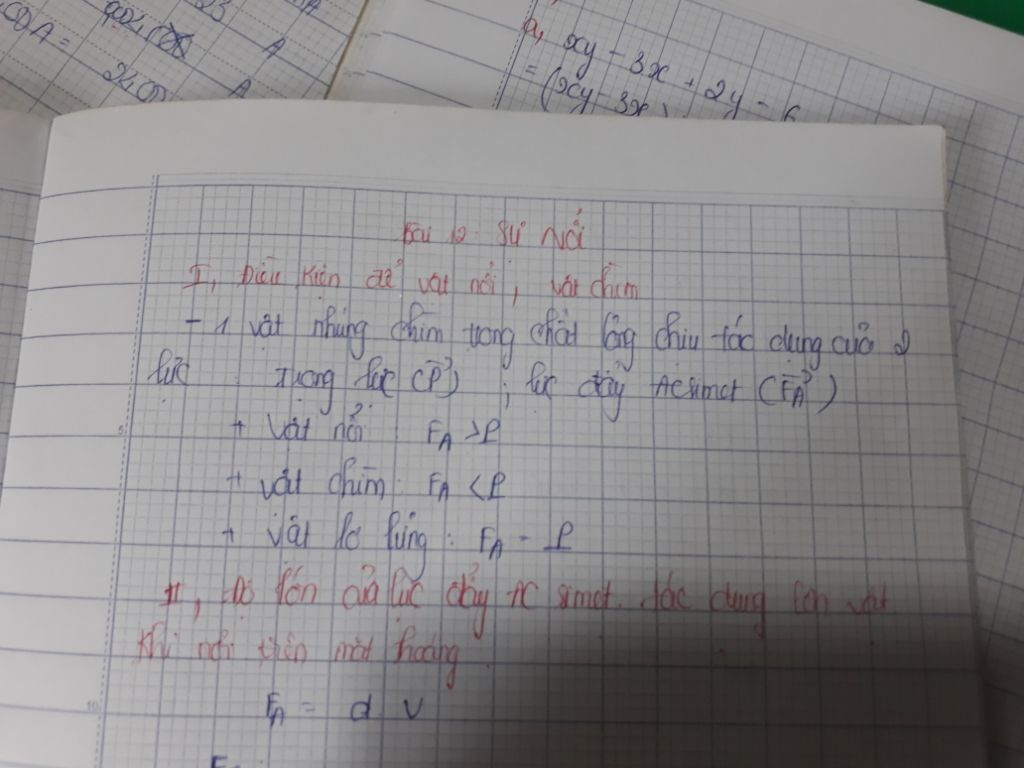 CDA =
A
240
A
a,
xy - 3x + 2y - 6
= (xy - 3x)
Bài 12: Sự Nổi
I, Điều kiện để vật nổi, vật chìm
- 1 vật nhúng chìm trong chất lỏng chịu tác dụng của 2
lực trọng lực (P) ; lực đẩy Acsimet (FA)
+ Vật nổi FA > P
+ vật chìm: FA < P
+ Vật lơ lửng: FA = P
II, Độ lớn của lực đẩy Ac simet tác dụng lên vật
khi nổi trên mặt thoáng
FA = d V